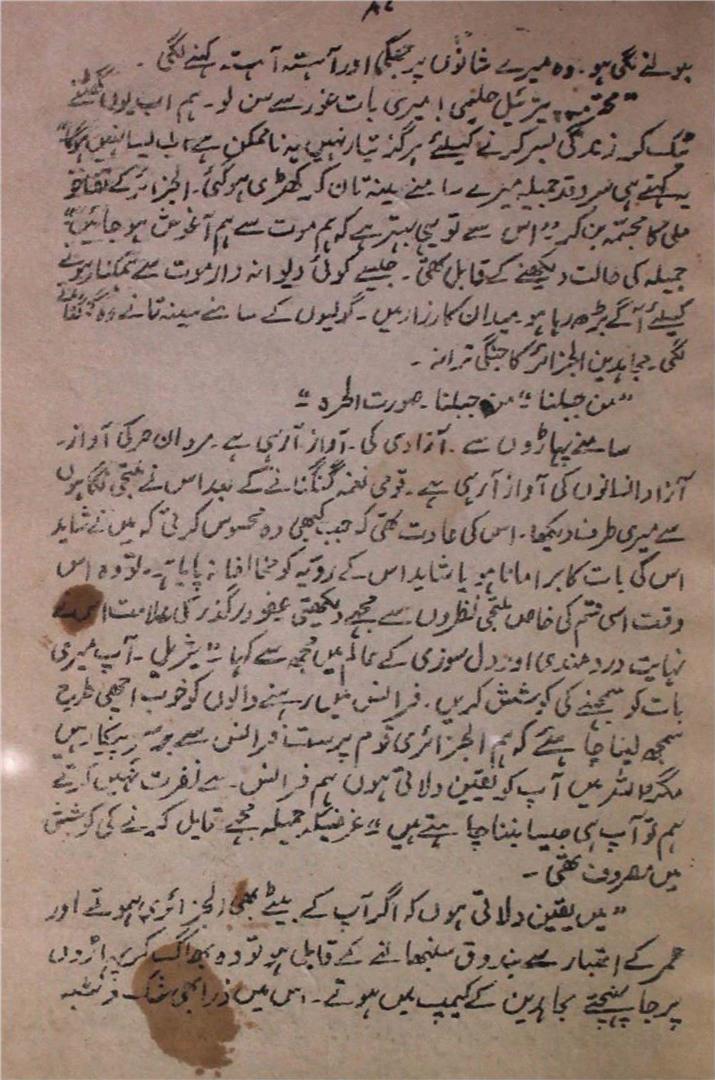 ۸۶
بولنے لگی ہو۔ وہ میرے شانوں پر جھکی اور آہستہ آہستہ کہنے لگی۔
"محترمہ یثریل حلیمی! میری بات غور سے سن لو۔ ہم اب یوں گھٹنے
ٹیک کر زندگی بسر کرنے کیلئے ہرگز تیار نہیں یہ ناممکن ہے اب ایسا نہیں ہوگا"
یہ کہتے ہی سر و قد جمیلہ میرے سامنے سینہ تان کر کھڑی ہو گئی۔ الجزائر کے تفاخر
ملی کا مجسمہ بن کر "اس سے تو یہی بہتر ہے کہ ہم موت سے ہم آغوش ہو جائیں"
جمیلہ کی حالت دیکھنے کے قابل تھی۔ جیسے کوئی دیوانہ وار موت سے ہمکنار ہونے
کیلئے آگے بڑھ رہا ہو۔ میدان کارزار میں۔ گولیوں کے سامنے سینہ تانے وہ گنگنانے
لگی۔ مجاہدین الجزائر کا جنگی ترانہ۔
"من جبلنا" من جبلنا۔ صورت الحرہ"
سامنے پہاڑوں سے۔ آزادی کی۔ آواز آرہی ہے۔ مردان حر کی آواز۔
آزاد انسانوں کی آواز آرہی ہے۔ قومی نغمہ گنگنانے کے بعد اس نے ملتجی نگاہوں
سے میری طرف دیکھا۔ اس کی عادت تھی کہ جب کبھی وہ محسوس کرتی کہ میں نے شاید
اس کی بات کا برا مانا ہو یا شاید اس کے رویہ کو مخالفانہ پایا ہے۔ تو وہ اس
وقت اسی قسم کی خاص ملتجی نظروں سے مجھے دیکھتی عفو و درگذر کی علامت اس نے
نہایت دردمندی اور دل سوزی کے عالم میں مجھ سے کہا "یثریل۔ آپ میری
بات کو سمجھنے کی کوشش کریں۔ فرانس میں رہنے والوں کو خوب اچھی طرح
سمجھ لینا چاہئے کہ ہم الجزائری قوم پرست فرانس سے برسر پیکار ہیں
مگر واللہ میں آپ کو یقین دلاتی ہوں ہم فرانس۔ سے نفرت نہیں کرتے
ہم تو آپ ہی جیسا بننا چاہتے ہیں" غرضیکہ جمیلہ مجھے قایل کرنے کی کوشش
میں مصروف تھی۔
"میں یقین دلاتی ہوں کہ اگر آپ کے بیٹے بھی الجزائری ہوتے اور
عمر کے اعتبار سے بندوق سنبھالنے کے قابل ہوتے تو وہ بھاگ کر پہاڑوں
پر جا پہنچتے مجاہدین کے کیمپ میں ہوتے۔ اس میں ذرا بھی شک و شبہ